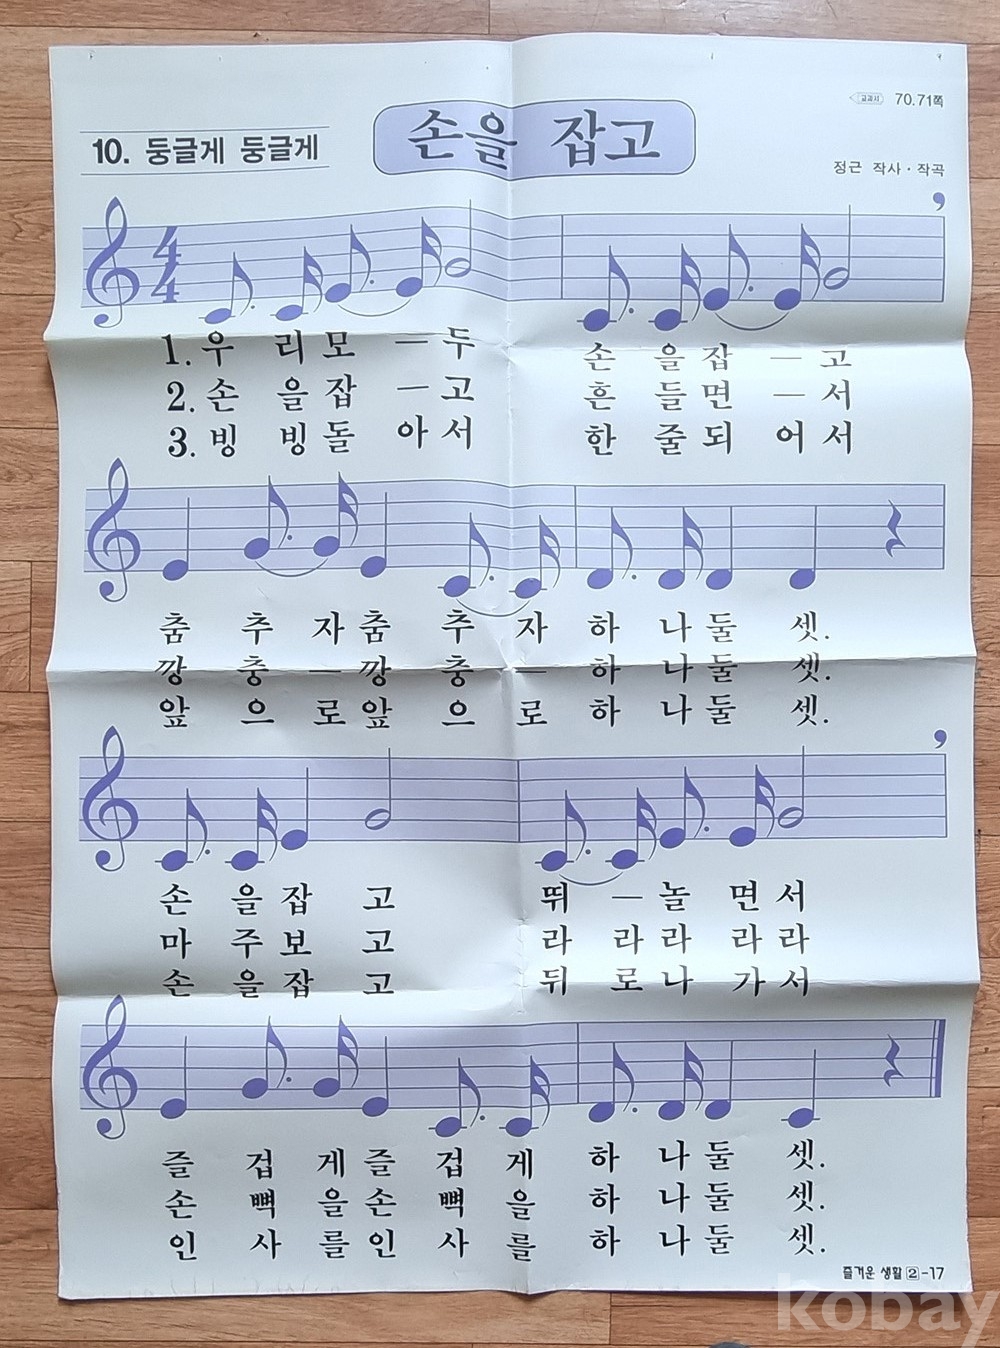 교과서 70.71쪽
10. 둥글게 둥글게
손을 잡고
정근 작사·작곡
4
4
1. 우 리 모 — 두 손 을 잡 — 고
2. 손 을 잡 — 고 흔 들 면 — 서
3. 빙 빙 돌 아 서 한 줄 되 어 서
춤 추 자 춤 추 자 하 나 둘 셋.
깡 충 — 깡 충 — 하 나 둘 셋.
앞 으 로 앞 으 로 하 나 둘 셋.
손 을 잡 고 뛰 — 놀 면 서
마 주 보 고 라 라 라 라 라
손 을 잡 고 뒤 로 나 가 서
즐 겁 게 즐 겁 게 하 나 둘 셋.
손 뼉 을 손 뼉 을 하 나 둘 셋.
인 사 를 인 사 를 하 나 둘 셋.
즐거운 생활 2-17
kobay